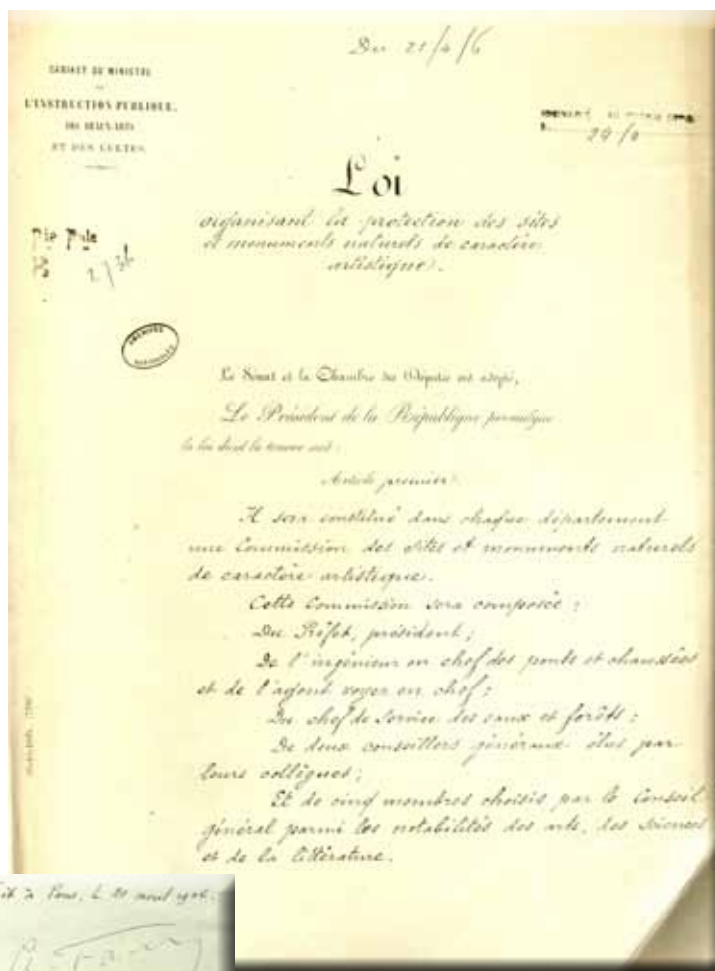 Du 21/4/6
CABINET DU MINISTRE
DE
L'INSTRUCTION PUBLIQUE,
DES BEAUX-ARTS
ET DES CULTES.
Loi
organisant la protection des sites
et monuments naturels de caractère
artistique.
ARCHIVES
NATIONALES
Le Sénat et la Chambre des Députés ont adopté,
Le Président de la République promulgue
la loi dont la teneur suit :
Article premier
Il sera constitué dans chaque département
une Commission des sites et monuments naturels
de caractère artistique.
Cette Commission sera composée :
Du Préfet, président ;
De l'ingénieur en chef des ponts et chaussées
et de l'agent voyer en chef ;
Du chef de service des eaux et forêts ;
De deux conseillers généraux élus par
leurs collègues ;
Et de cinq membres choisis par le Conseil
général parmi les notabilités des arts, des sciences
et de la littérature.
à Paris, le 21 avril 1906.